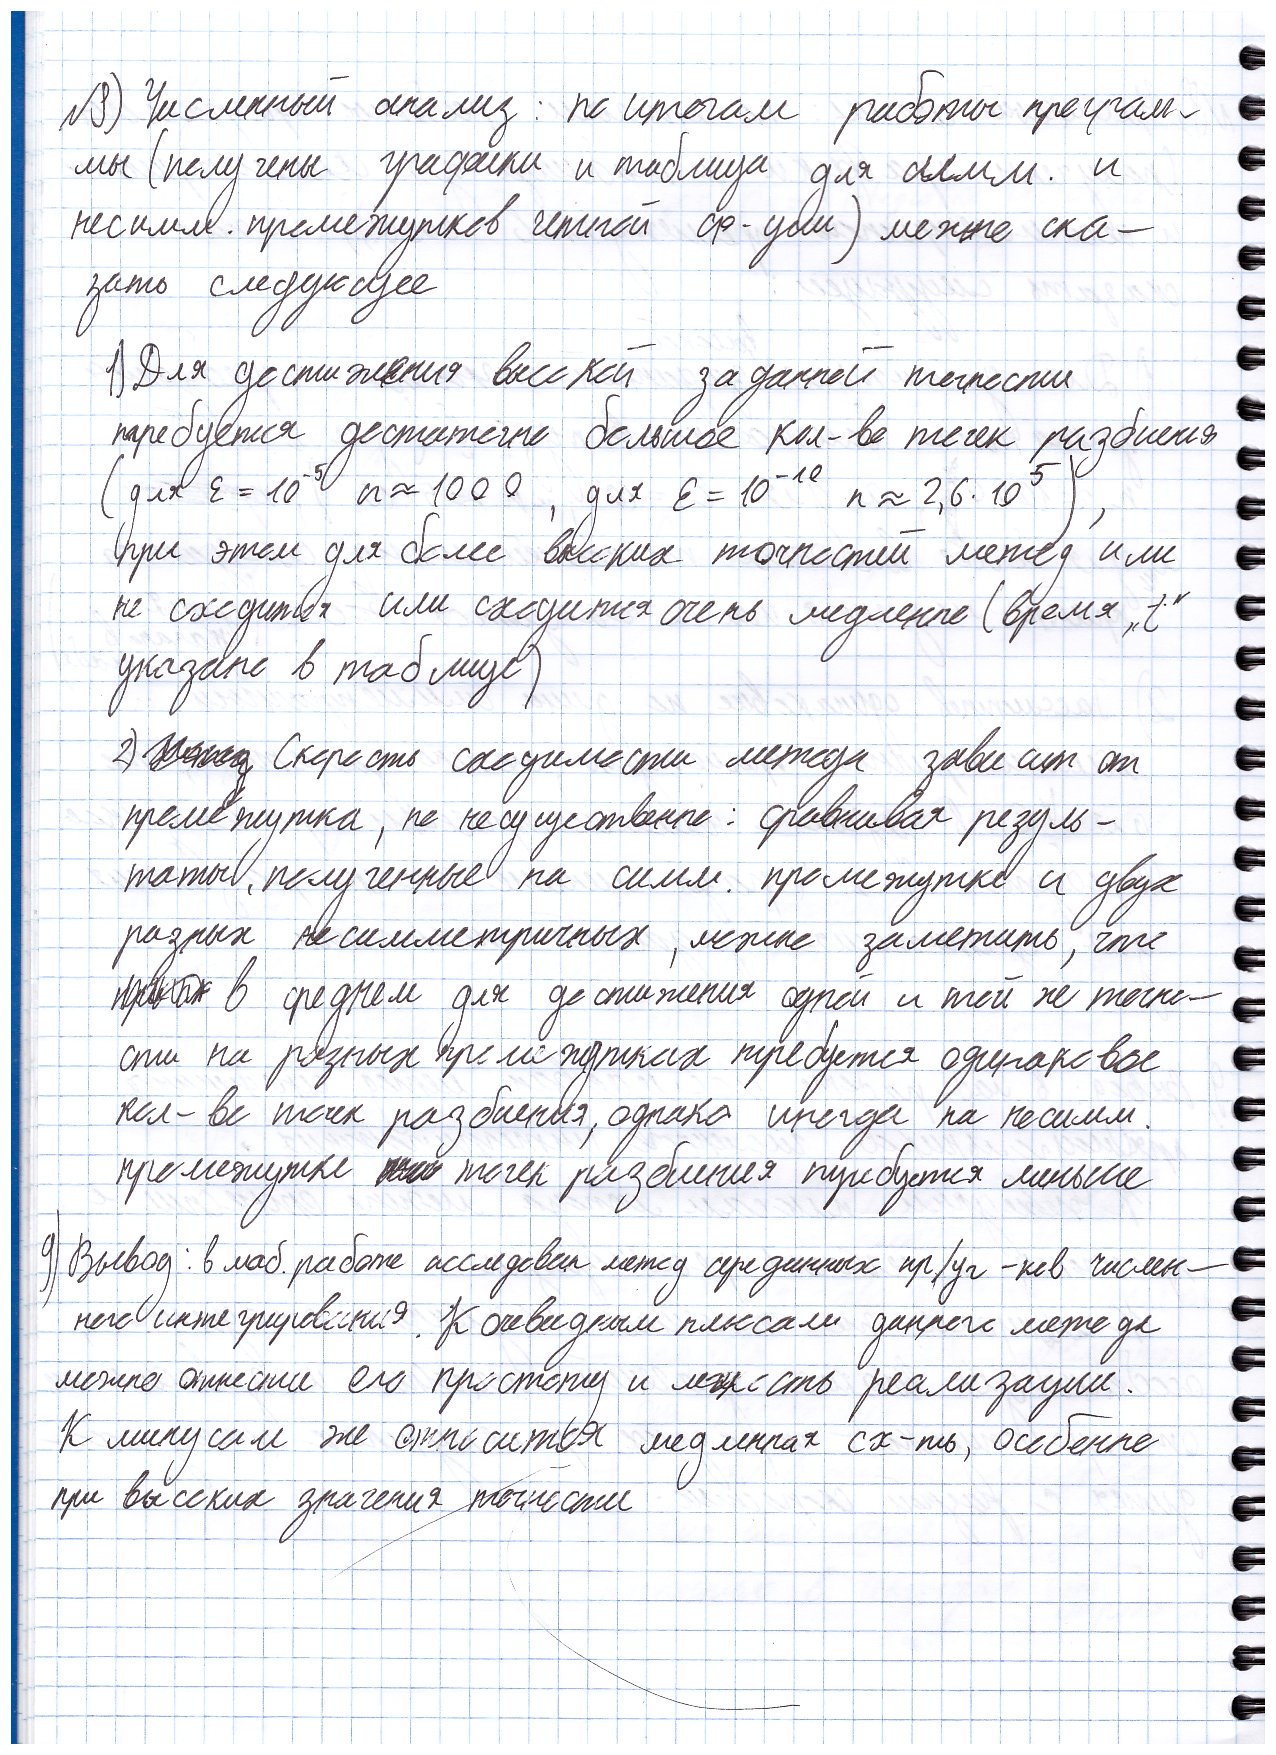 8) Численный анализ: по итогам работы програм-
мы (получены графики и таблица для симм. и
несимм. промежутков четной ф-ции) можно ска-
зать следующее
1) Для достижения высокой заданной точности
требуется достаточно большое кол-во точек разбиения
(для ε = 10⁻⁵ n ≈ 1000, для ε = 10⁻¹⁰ n ≈ 2,6·10⁵),
при этом для более высоких точностей метод или
не сходится или сходится очень медленно (время „t“
указано в таблице)
2) Скорость сходимости метода зависит от
промежутка, но несущественно: сравнивая резуль-
таты, полученные на симм. промежутке и двух
разных несимметричных, можно заметить, что
в среднем для достижения одной и той же точно-
сти на разных промежутках требуется одинаковое
кол-во точек разбиения, однако иногда на несимм.
промежутке точек разбиения требуется меньше
9) Вывод: в лаб. работе исследован метод серединных пр/уг-ков числен-
ного интегрирования. К очевидным плюсам данного метода
можно отнести его простоту и реализации.
К минусам же относится медленная сх-ть, особенно
при высоких значения точности